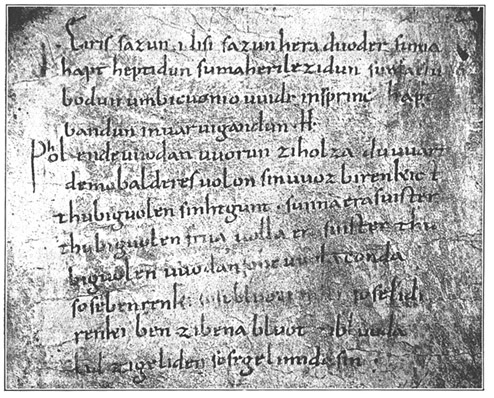 Eiris sazun idisi sazun hera duoder suma
hapt heptidun sumaherilezidun sumaclu
bodun umbicuonio uuidi insprinc hapt
bandun inuar uigandun .H.
Phol endeuuodan uuorun ziholza duuuart
demobalderes uolon sinuuoz birenkict
thubiguolen sinhtgunt . sunnaerasuister
thubiguolen friia uolla era suister thu
biguolen uuodan sohe uuolaconda
sosebenrenki soselidi
renki ben zibena bluot zibluoda
lid zigeliden sosegelimida sin .